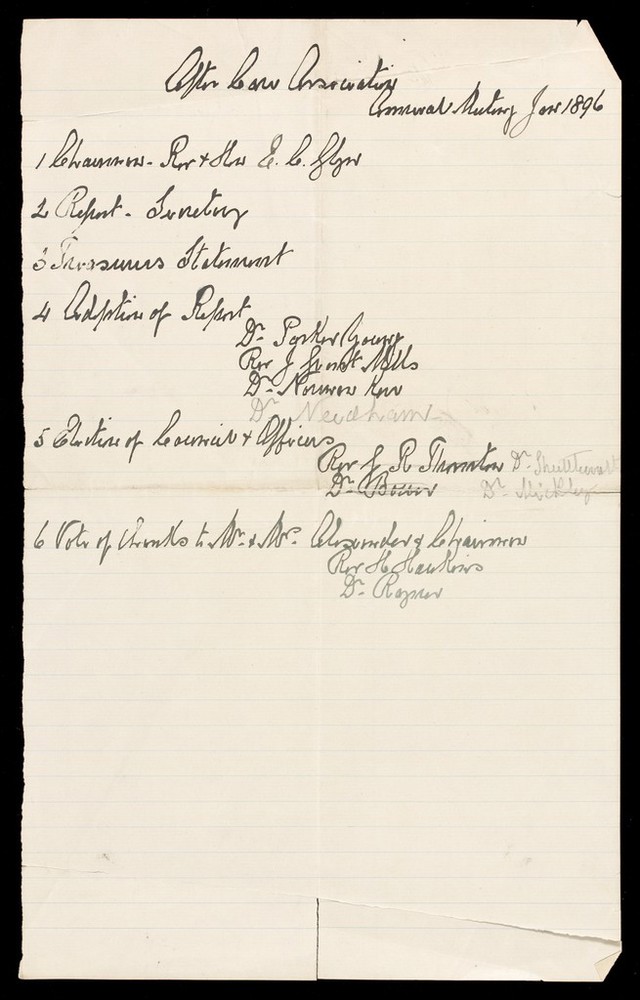 After Care Association
Annual Meeting Jan 1896
1 Chairman - Rev & Hon E. C. Glyn
2 Report - Secretary
3 Treasurers Statement
4 Adoption of Report
Dr. Parker Young
Rev J Grant Mills
Dr. Norman Kerr
Dr. Needham
5 Election of Council & Officers
Rev J. R. Thornton Dr. Shuttleworth
Dr. Bower Dr. Mickley
6 Vote of thanks to Mr. & Mrs. Alexander & Chairman
Rev H Hawkins
Dr. Rayner